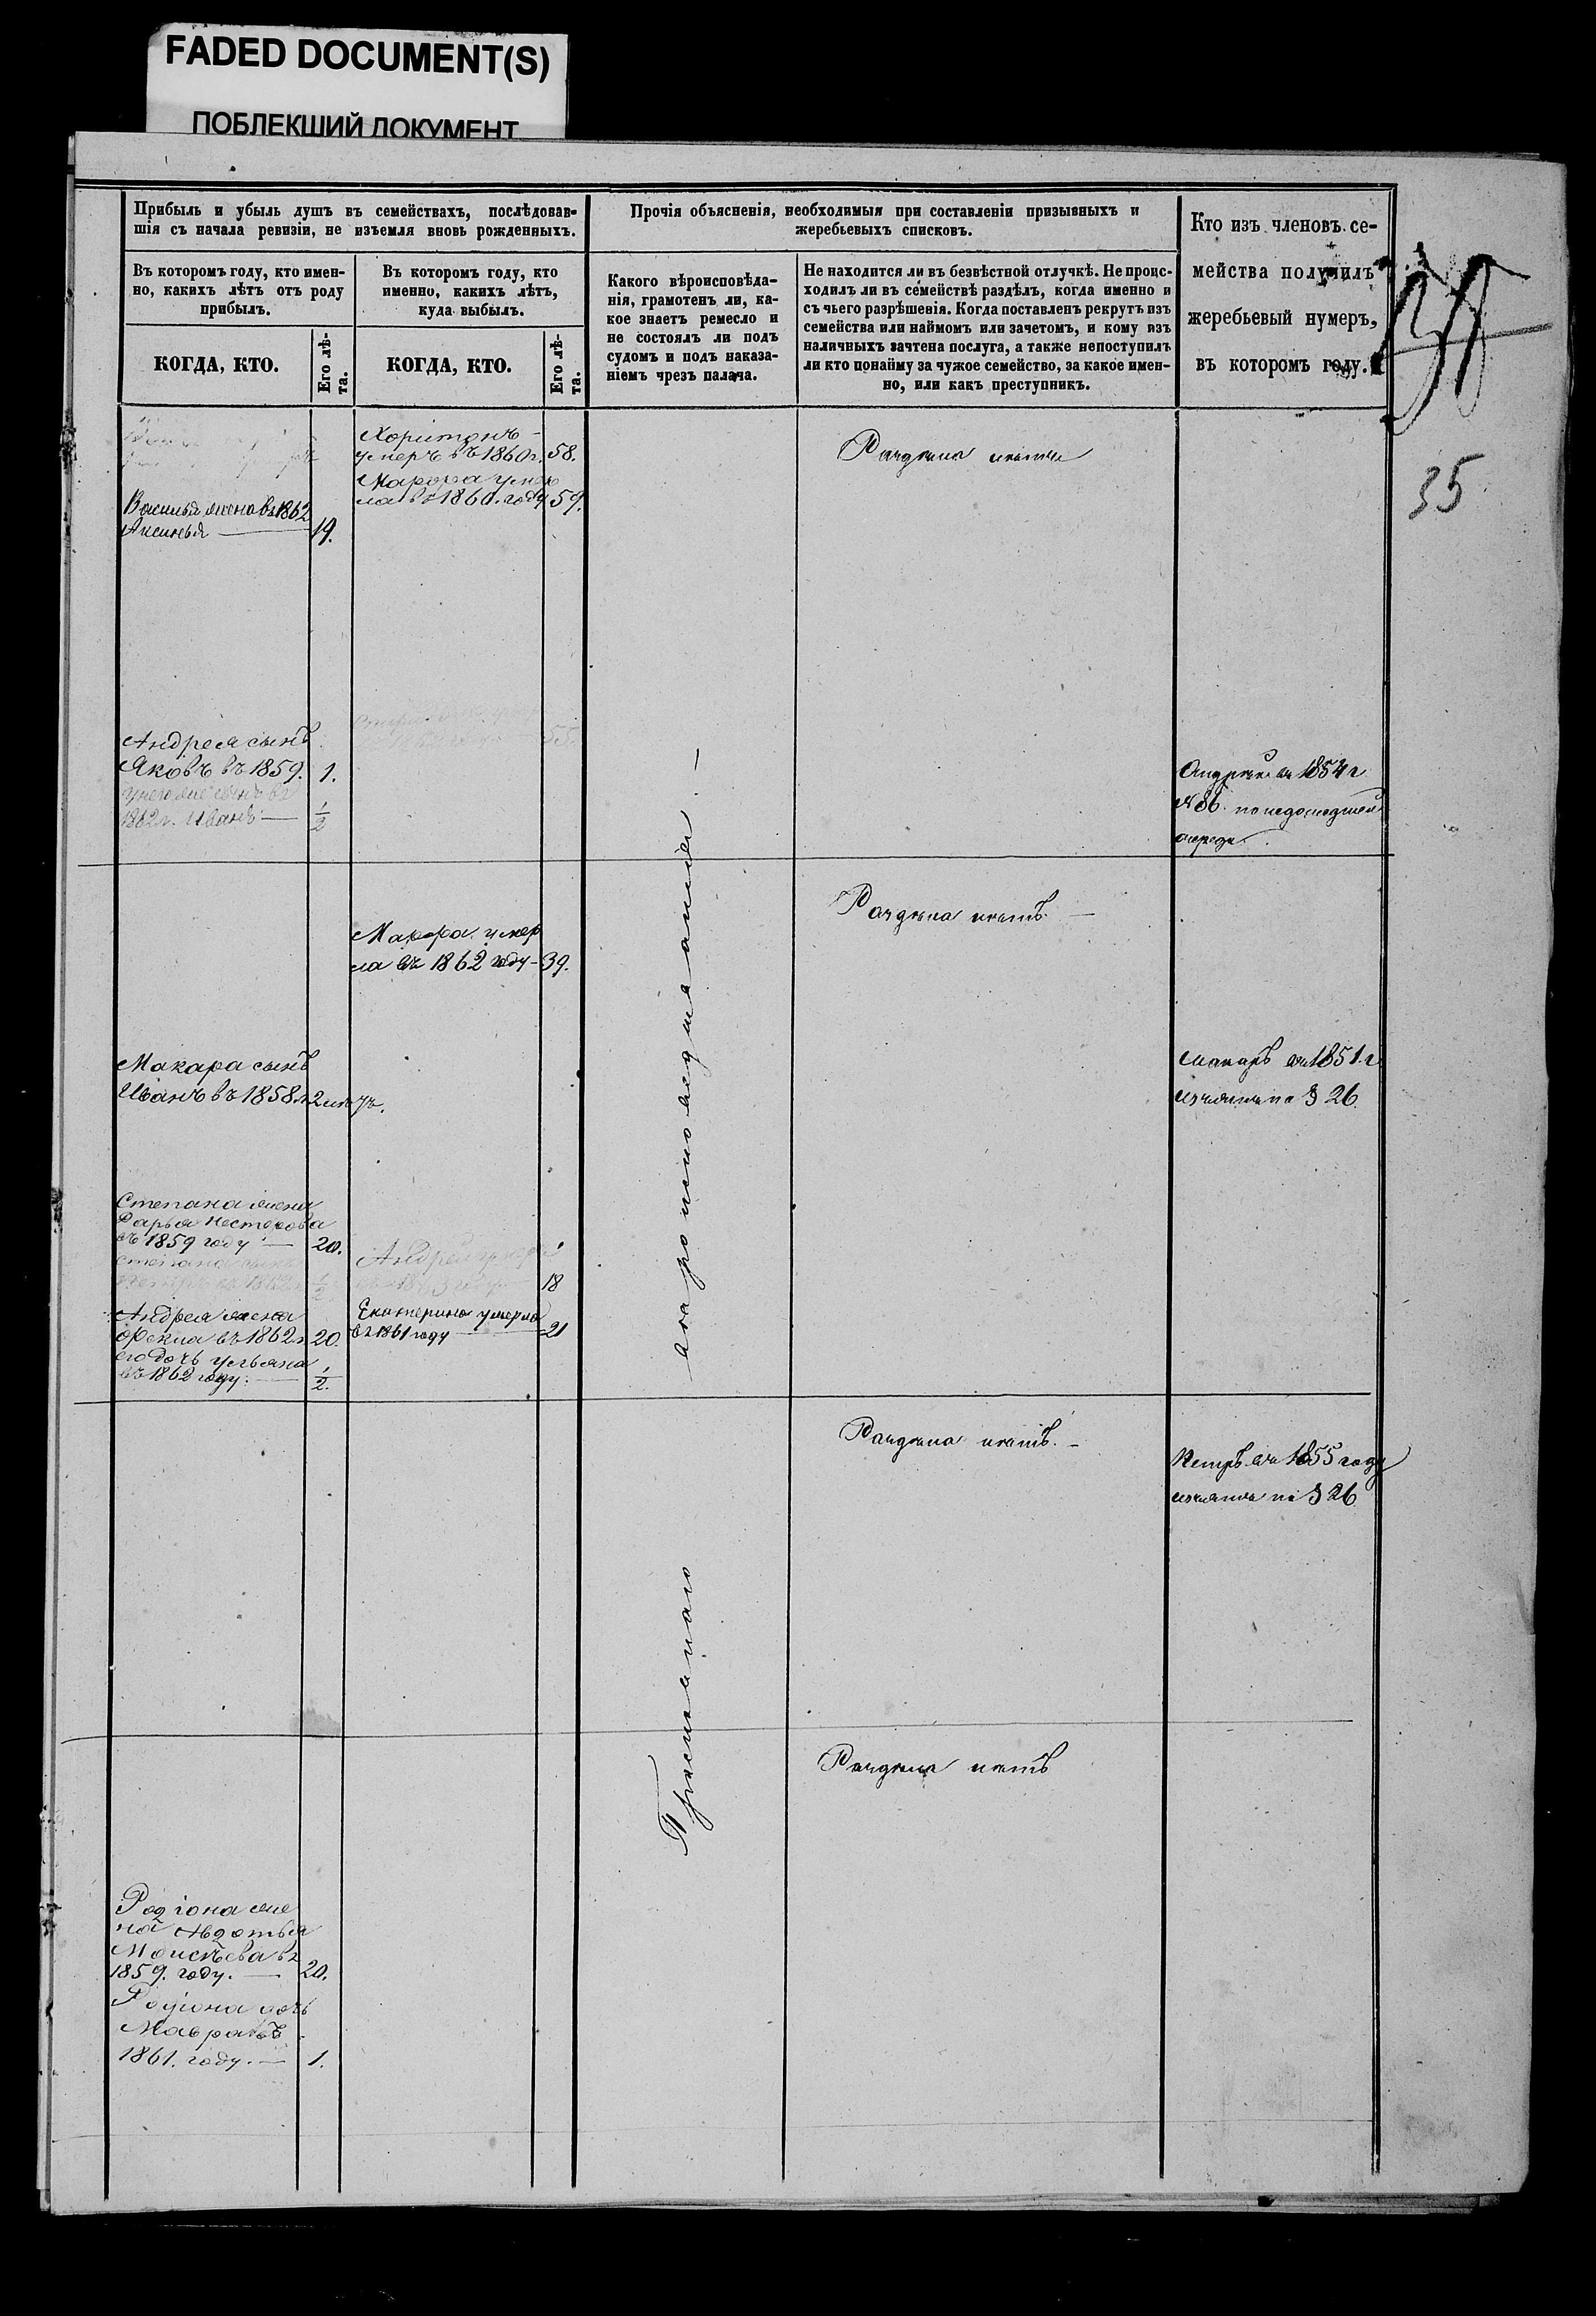 FADED DOCUMENT(S)
ПОБЛЕКШИЙ ДОКУМЕНТ
Прибыль и убыль душъ въ семействахъ, послѣдовав-
шія съ начала ревизіи, не изъемля вновь рожденныхъ.
Въ которомъ году, кто имен-
но, какихъ лѣтъ отъ роду
прибылъ.
КОГДА, КТО.
Его лѣ-
та.
Въ которомъ году, кто
именно, какихъ лѣтъ,
куда выбылъ.
КОГДА, КТО.
Его лѣ-
та.
Прочія объясненія, необходимыя при составленіи призывныхъ и
жеребьевыхъ списковъ.
Какого вѣроисповѣда-
нія, грамотенъ ли, ка-
кое знаетъ ремесло и
не состоялъ ли подъ
судомъ и подъ наказа-
ніемъ чрезъ палача.
Не находится ли въ безвѣстной отлучкѣ. Не проис-
ходилъ ли въ семействѣ раздѣлъ, когда именно и
съ чьего разрѣшенія. Когда поставленъ рекрутъ изъ
семейства или наймомъ или зачетомъ, и кому изъ
наличныхъ зачтена послуга, а также непоступилъ
ли кто понайму за чужое семейство, за какое имен-
но, или какъ преступникъ.
Кто изъ членовъ се-
мейства получилъ
жеребьевый нумеръ,
въ которомъ году.
35
Харитонъ
умеръ въ 1860 г. 58.
Марфа умер
ла въ 1860. году 59.
Василья жена въ 1862
Аксинья — 19.
Раздѣла нѣтъ
Андрея сынъ
Яковъ въ 1859. 1.
унего же сынъ въ
1862 г. Иванъ — 1/2
55.
Андрей въ 1854 г
№ 86. по недошедшей
очереди.
Марфа умер
ла въ 1862 году — 39.
Раздѣла нѣтъ. —
Макара сынъ
Иванъ въ 1858 г. 2
Макаръ въ 1851. г
изъятъ по § 26.
Степана жена
Дарья Нестерова
въ 1859 году — 20.
Степана сынъ
въ 1862 1/2
Андрей умеръ
году 18
Андрея жена
Фекла въ 1862 г 20.
его дочь Ульяна
въ 1862 году. — 1/2.
Екатерина умерла
въ 1861 году — 21
Раздѣла нѣтъ. —
Петръ въ 1855 году
изъятъ по § 26
Православнаго
вѣроисповѣданія. —
Раздѣла нѣтъ
Родіона же
на Авдотья
Моисѣева въ
1859. году. — 20.
Родіона дочь
Мавра въ
1861. году. — 1.